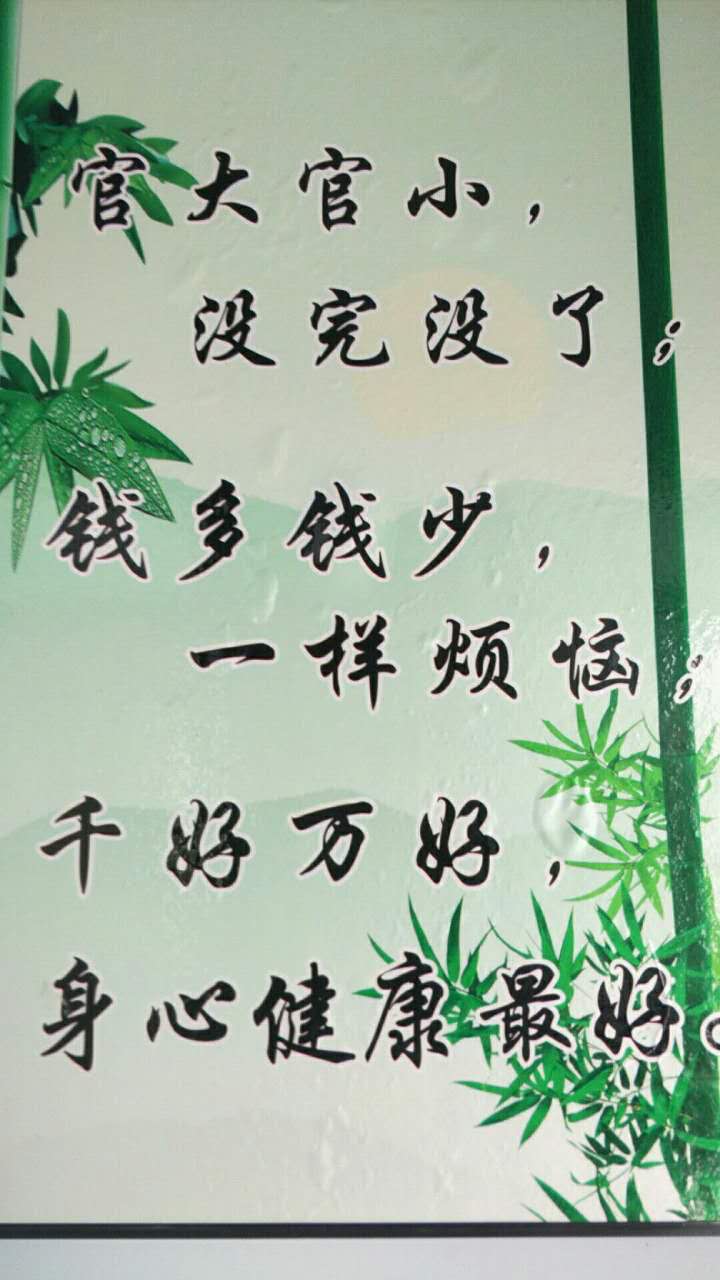 官大官小，
没完没了；
钱多钱少，
一样烦恼；
千好万好，
身心健康最好。